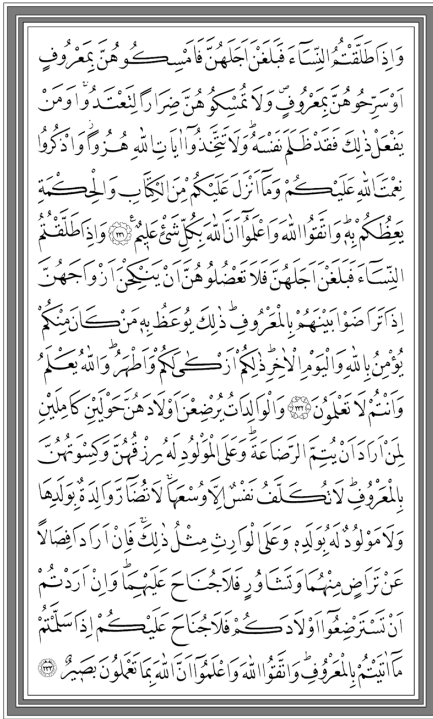 وَاِذَا طَلَّقْتُمُ النِّسَٓاءَ فَبَلَغْنَ اَجَلَهُنَّ فَاَمْسِكُوهُنَّ بِمَعْرُوفٍ
اَوْ سَرِّحُوهُنَّ بِمَعْرُوفٍۖ وَلَا تُمْسِكُوهُنَّ ضِرَارًا لِتَعْتَدُواۚ وَمَنْ
يَفْعَلْ ذٰلِكَ فَقَدْ ظَلَمَ نَفْسَهُۜ وَلَا تَتَّخِذُٓوا اٰيَاتِ اللّٰهِ هُزُوًاۘ وَاذْكُرُوا
نِعْمَتَ اللّٰهِ عَلَيْكُمْ وَمَٓا اَنْزَلَ عَلَيْكُمْ مِنَ الْكِتَابِ وَالْحِكْمَةِ
يَعِظُكُمْ بِهۜ وَاتَّقُوا اللّٰهَ وَاعْلَمُٓوا اَنَّ اللّٰهَ بِكُلِّ شَيْءٍ عَلِيمٌ۟ ﴿٢٣١﴾ وَاِذَا طَلَّقْتُمُ
النِّسَٓاءَ فَبَلَغْنَ اَجَلَهُنَّ فَلَا تَعْضُلُوهُنَّ اَنْ يَنْكِحْنَ اَزْوَاجَهُنَّ
اِذَا تَرَاضَوْا بَيْنَهُمْ بِالْمَعْرُوفِۜ ذٰلِكَ يُوعَظُ بِهِ مَنْ كَانَ مِنْكُمْ
يُؤْمِنُ بِاللّٰهِ وَالْيَوْمِ الْاٰخِرِۜ ذٰلِكُمْ اَزْكٰى لَكُمْ وَاَطْهَرُۜ وَاللّٰهُ يَعْلَمُ
وَاَنْتُمْ لَا تَعْلَمُونَ ﴿٢٣٢﴾ وَالْوَالِدَاتُ يُرْضِعْنَ اَوْلَادَهُنَّ حَوْلَيْنِ كَامِلَيْنِ
لِمَنْ اَرَادَ اَنْ يُتِمَّ الرَّضَاعَةَۜ وَعَلَى الْمَوْلُودِ لَهُ رِزْقُهُنَّ وَكِسْوَتُهُنَّ
بِالْمَعْرُوفِۜ لَا تُكَلَّفُ نَفْسٌ اِلَّا وُسْعَهَاۚ لَا تُضَٓارَّ وَالِدَةٌ بِوَلَدِهَا
وَلَا مَوْلُودٌ لَهُ بِوَلَدِهِ وَعَلَى الْوَارِثِ مِثْلُ ذٰلِكَۚ فَاِنْ اَرَادَا فِصَالًا
عَنْ تَرَاضٍ مِنْهُمَا وَتَشَاوُرٍ فَلَا جُنَاحَ عَلَيْهِمَاۜ وَاِنْ اَرَدْتُمْ
اَنْ تَسْتَرْضِعُٓوا اَوْلَادَكُمْ فَلَا جُنَاحَ عَلَيْكُمْ اِذَا سَلَّمْتُمْ
مَٓا اٰتَيْتُمْ بِالْمَعْرُوفِۜ وَاتَّقُوا اللّٰهَ وَاعْلَمُٓوا اَنَّ اللّٰهَ بِمَا تَعْمَلُونَ بَصِيرٌ ﴿٢٣٣﴾